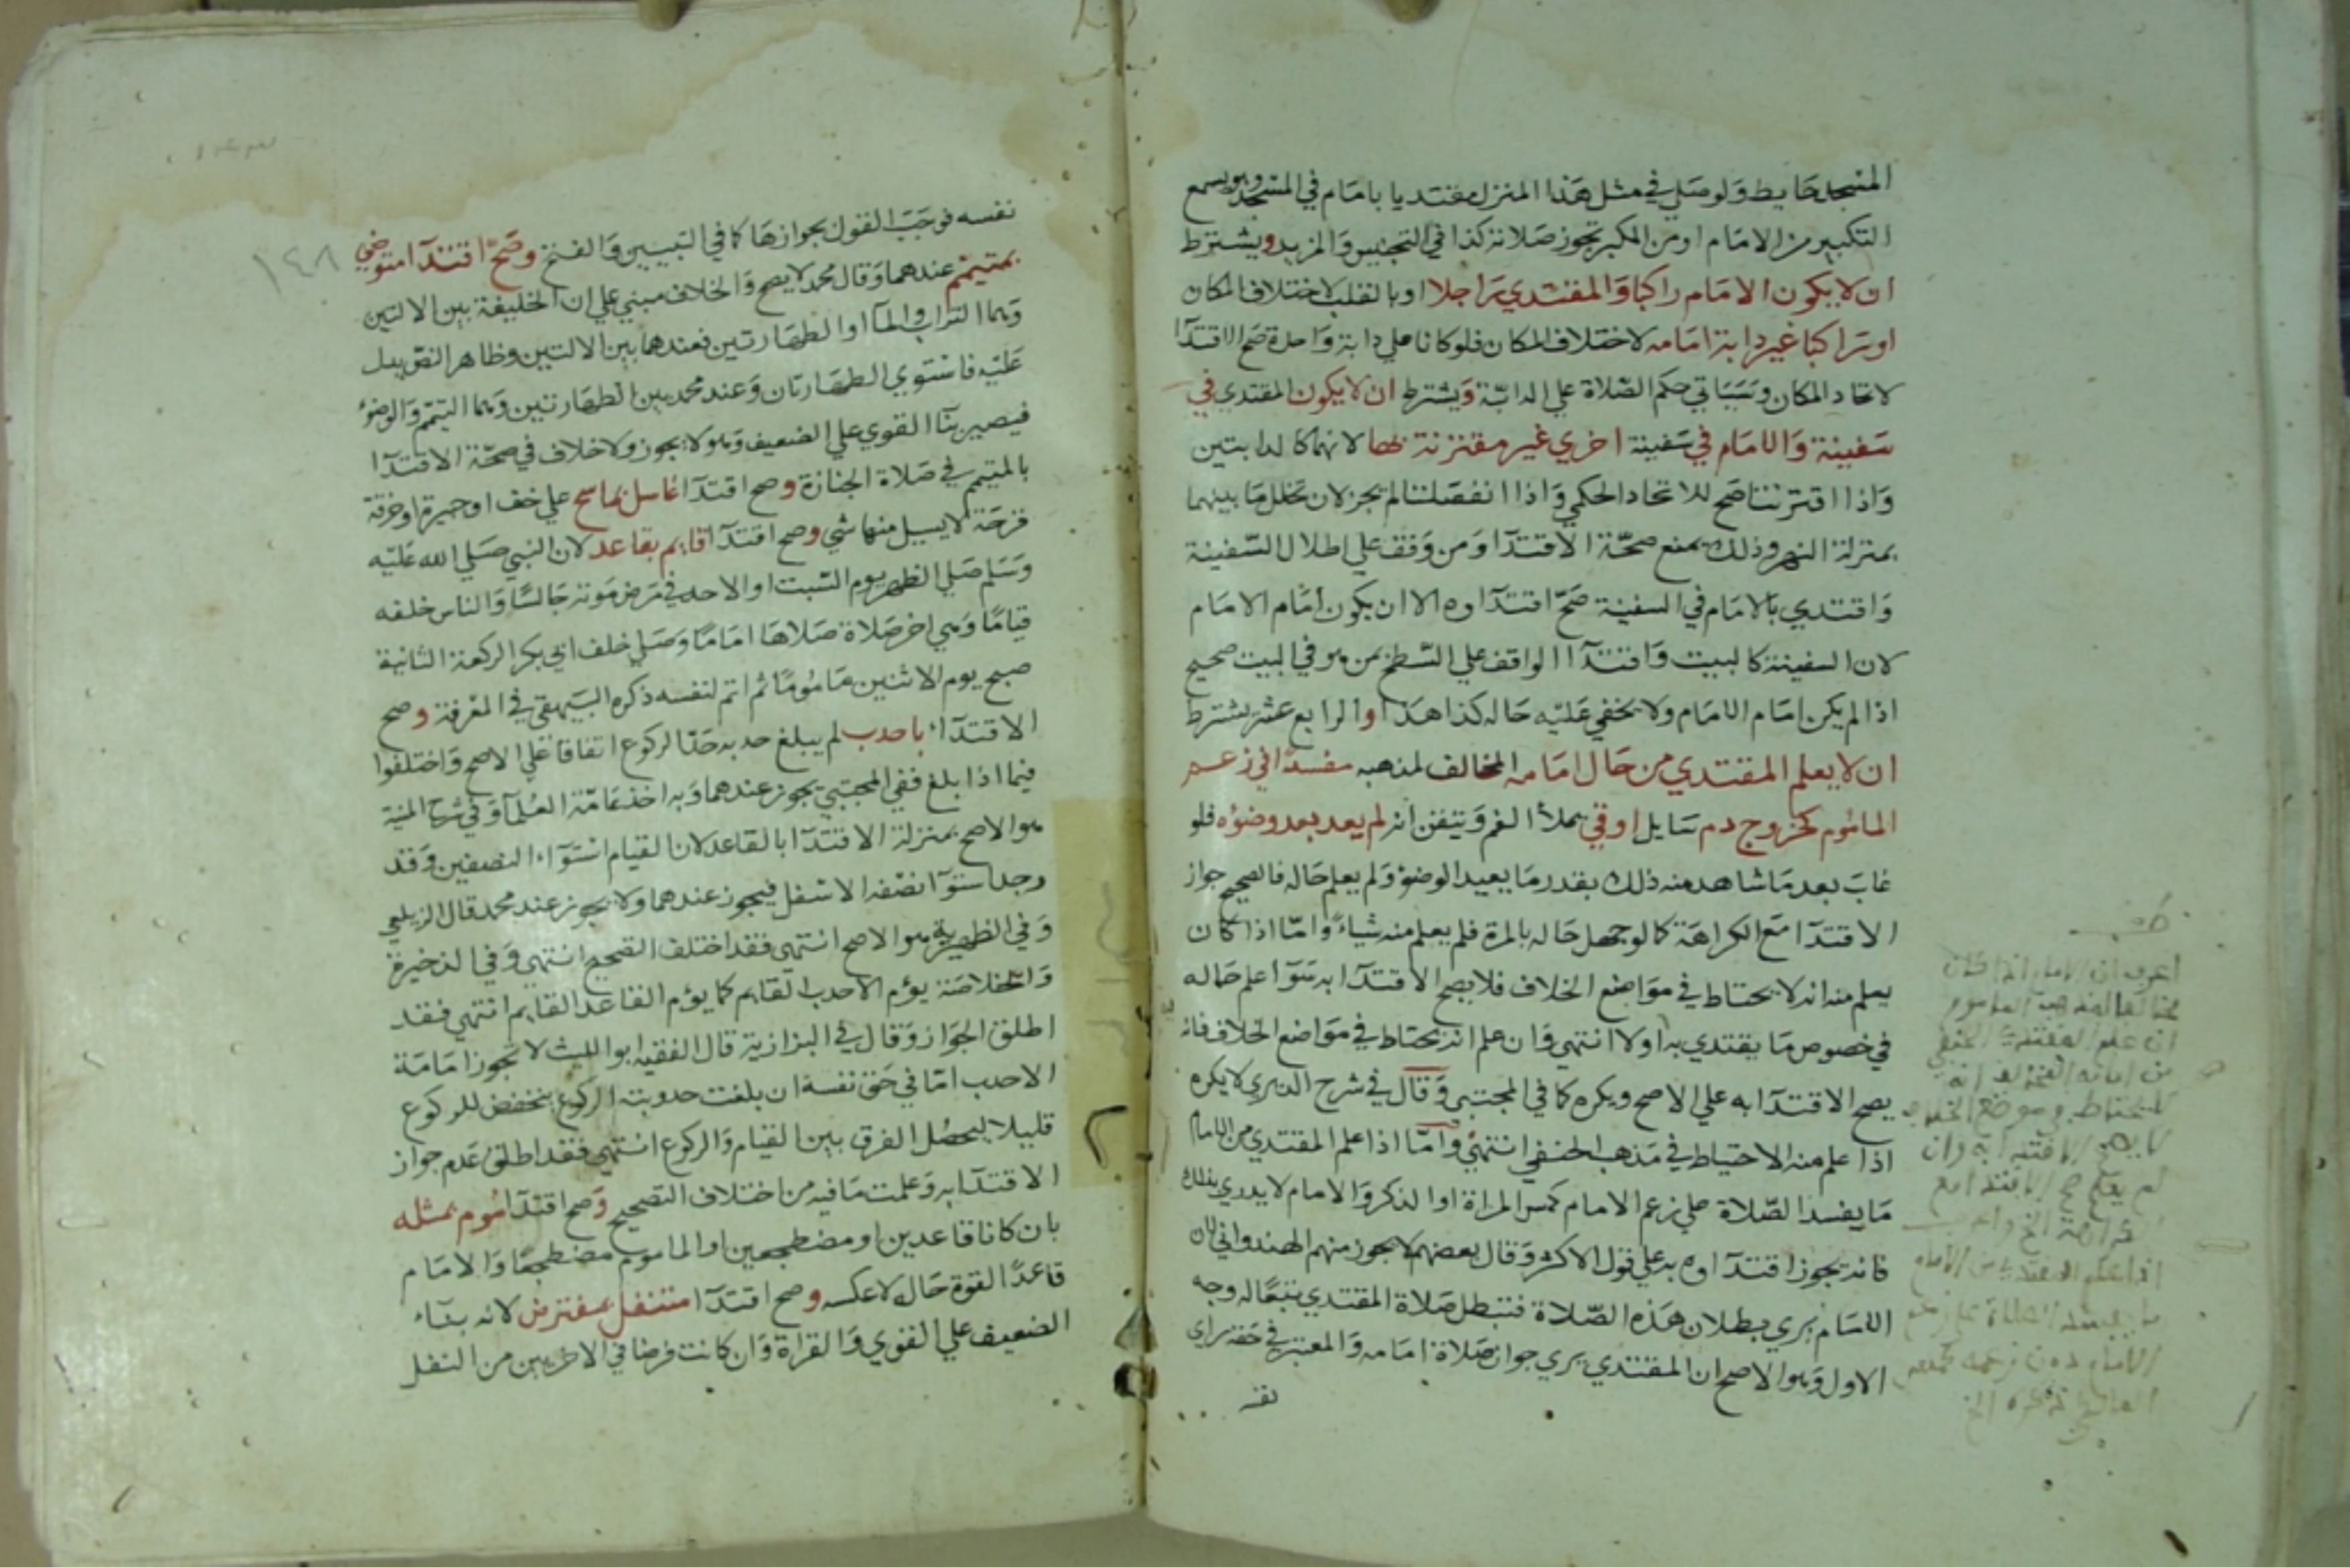 المسجد حايط ولو صلي في مثل هذا المنزل مقتديا بامام في المسجد وهو يسمع
التكبير من الامام او من المكبر تجوز صلاته كذا في التجنيس والمزيد ويشترط
ان لا يكون الامام راكبا والمقتدي راجلا او بالقلب لاختلاف المكان
او راكبا غير دابة امامه لاختلاف المكان فلو كانا علي دابة واحدة صح الاقتدآ
لاتحاد المكان وسياتي حكم الصلاة علي الدابة ويشترط ان لا يكون المقتدي في
سفينة والامام في سفينة اخري غير مقترنة بها لانهما كالدابتين
واذا اقترنتا صح للاتحاد الحكمي واذا انفصلتا لم يجز لان تخلل ما بينهما
بمنزلة النهر وذلك يمنع صحة الاقتدآ ومن وقف علي اطلال السفينة
واقتدي بالامام في السفينة صح اقتدآوه الا ان يكون امام الامام
لان السفينة كالبيت واقتدآ الواقف علي السطح بمن هو في البيت صحيح
اذا لم يكن امام الامام ولا يخفي عليه حاله كذا هذا والرابع عشر يشترط
ان لا يعلم المقتدي من حال امامه المخالف لمذهبه مفسدا في زعم
الماموم كخروج دم سايل او قي يملأ الفم وتيقن انه لم يعد بعده وضوءه فلو
غاب بعد ما شاهد منه ذلك بقدر ما يعيد الوضؤ ولم يعلم حاله فالصحيح جواز
الاقتدآ مع الكراهة كما لو جهل حاله بالمرة فلم يعلم منه شياء واما اذا كان
يعلم منه انه لا يحتاط في مواضع الخلاف فلا يصح الاقتدآ به سوآ علم حاله
في خصوص ما يقتدي به او لا انتهي وان علم انه يحتاط في مواضع الخلاف فانه
يصح الاقتدآ به علي الاصح ويكره كما في المجتبي وقال في شرح الديري لا يكره
اذا علم منه الاحتياط في مذهب الحنفي انتهي واما اذا علم المقتدي من الامام
ما يفسد الصلاة علي زعم الامام كمس المراة او الذكر والامام لا يدري بذلك
فانه يجوز اقتدآوه به علي قول الاكثر وقال بعضهم لا يجوز منهم الهندواني لان
الامام يري بطلان هذه الصلاة فتبطل صلاة المقتدي تبعا له وجه
الاول وهو الاصح ان المقتدي يري جواز صلاة امامه والمعتبر في حقه راي
نفسه
اعرف ان الامام اذا كان
مخالفا لمذهب الماموم
ان علم المقتدي الحنفي
من امامه المخالف انه
لا يحتاط في موضع الخلاف
لا يصح الاقتدا به وان
لم يعلم صح الاقتدا مع
الكراهة الخ
اذا علم المقتدي من الامام
ما يفسد الصلاة علي زعم
الامام دون زعمه
١٤٨
نفسه فوجب القول بجوازها كما في التبيين والفتح وصح اقتدآ متوضي
بمتيمم عندهما وقال محمد لا يصح والخلاف مبني علي ان الخليفة بين الالتين
وهما التراب والمآ او الطهارتين فعندهما بين الالتين وظاهر النص يدل
عليه فاستوي الطهارتان وعند محمد بين الطهارتين وهما التيمم والوضؤ
فيصير بنآ القوي علي الضعيف وهو لا يجوز ولا خلاف في صحة الاقتدآ
بالمتيمم في صلاة الجنازة وصح اقتدآ غاسل بماسح علي خف او جبيرة او خرقة
قرحة لا يسيل منها شي وصح اقتدآ قايم بقاعد لان النبي صلي الله عليه
وسلم صلي الظهر يوم السبت او الاحد في مرض موته جالسا والناس خلفه
قياما وهي اخر صلاة صلاها اماما وصلي خلف ابي بكر الركعة الثانية
صبح يوم الاثنين ماموما ثم اتم لنفسه ذكره البيهقي في المعرفة وصح
الاقتدآء باحدب لم يبلغ حدبه حد الركوع اتفاقا علي الاصح واختلفوا
فيما اذا بلغ ففي المجتبي يجوز عندهما وبه اخذ عامة العلمآ وفي شرح المنية
هو الاصح بمنزلة الاقتدآ بالقاعد لان القيام استوآء النصفين وقد
وجد استوآ نصفه الاسفل فيجوز عندهما ولا يجوز عند محمد قال الزيلعي
وفي الظهيرية هو الاصح انتهي فقد اختلف التصحيح انتهي وفي الذخيرة
والخلاصة يؤم الاحدب القايم كما يؤم القاعد القايم انتهي فقد
اطلق الجواز وقال في البزازية قال الفقيه ابو الليث لا تجوز امامة
الاحدب اما في حق نفسه ان بلغت حدوبته الركوع ينخفض للركوع
قليلا ليحصل الفرق بين القيام والركوع انتهي فقد اطلق عدم جواز
الاقتدآ به وعلمت ما فيه من اختلاف التصحيح وصح اقتدآ موم بمثله
بان كانا قاعدين او مضطجعين او الماموم مضطجعا والامام
قاعدا لقوة حاله لا عكسه وصح اقتدآ متنفل بمفترض لانه بنآء
الضعيف علي القوي والقراة وان كانت فرضا في الاخريين من النفل